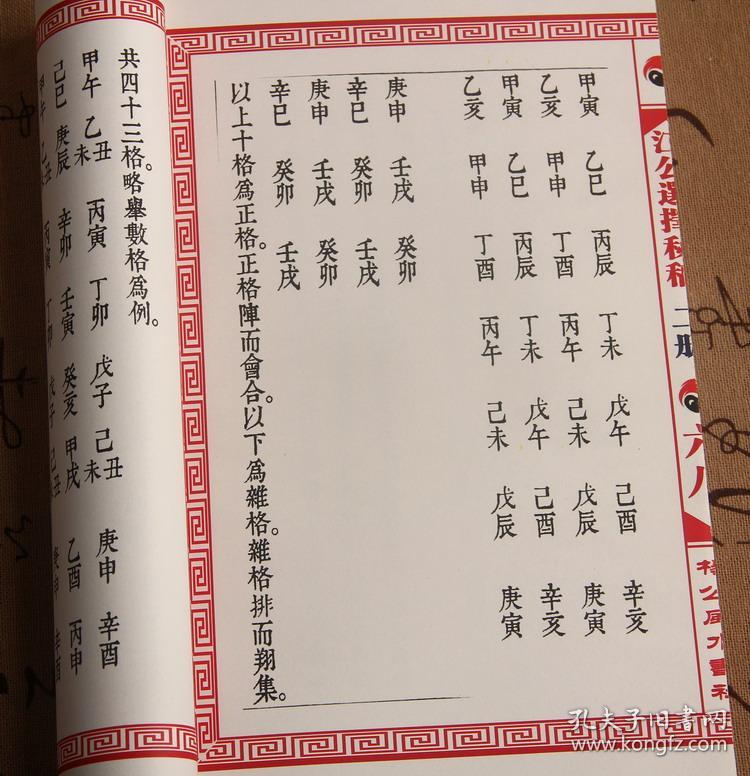 江公選擇秘稿 二册 六八
甲寅 乙巳 丙辰 丁未 戊午 己酉 辛亥
乙亥 甲申 丁酉 丙午 己未 戊辰 庚寅
甲寅 乙巳 丙辰 丁未 戊午 己酉 辛亥
乙亥 甲申 丁酉 丙午 己未 戊辰 庚寅
庚申 壬戌 癸卯
辛巳 癸卯 壬戌
庚申 壬戌 癸卯
辛巳 癸卯 壬戌
以上十格為正格。正格陣而會合。以下為雜格。雜格排而翔集。
共四十三格。略舉數格為例。
甲午 乙丑未 丙寅 丁卯 戊子 己丑未 庚申 辛酉
己巳 庚辰 辛卯 壬寅 癸亥 甲戌 乙酉 丙申
丙寅 丁卯 戊子 庚申 辛酉
孔夫子旧书网
www.kongfz.com